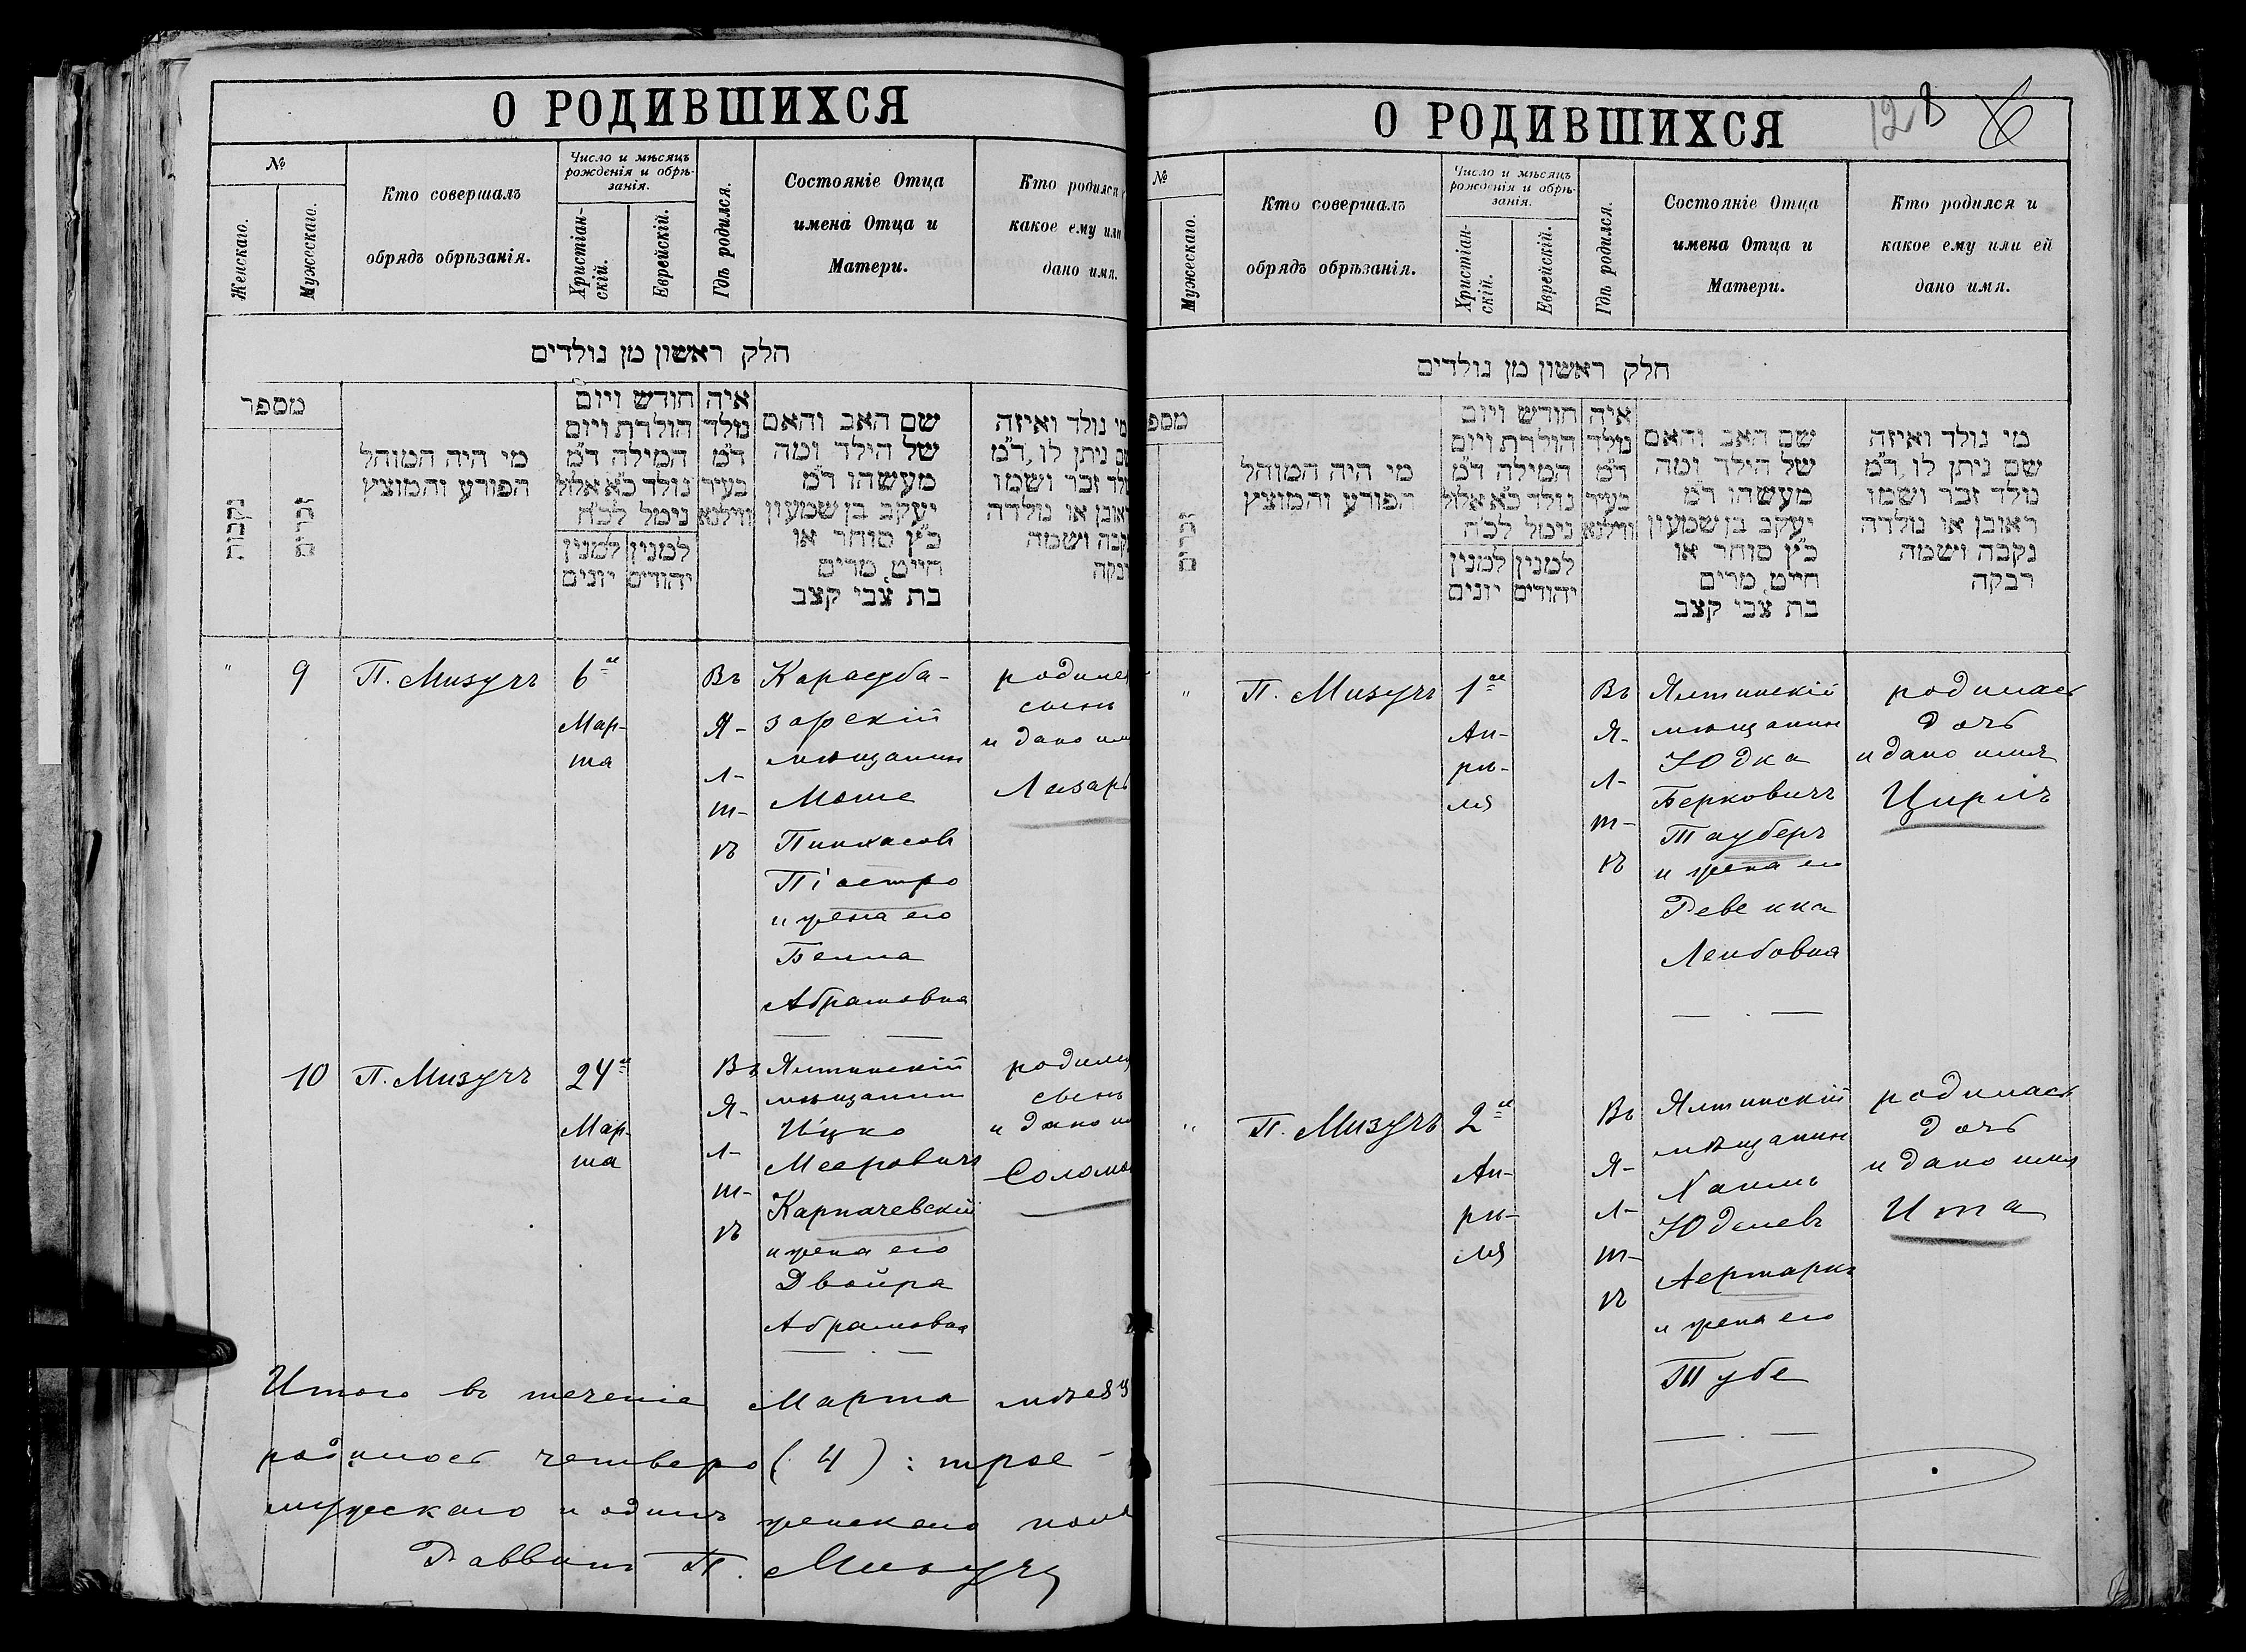 О РОДИВШИХСЯ
№
Женскаго.
Мужескаго.
Кто совершалъ
обрядъ обрѣзанія.
Число и мѣсяцъ
рожденія и обрѣ-
занія.
Христіан-
скій.
Еврейскій.
Гдѣ родился.
Состояніе Отца
имена Отца и
Матери.
Кто родился
какое ему или
дано имя.
חלק ראשון מן נולדים
מספר
נקבות
זכרים
מי היה המוהל
הפורע והמוצץ
חודש ויום
הולדת ויום
המילה ד"מ
נולד כ"א אלול
נימל לכ"ח
למנין
יהודים
למנין
יונים
איה
נולד
ד"מ
בעיר
ווילנא
שם האב והאם
של הילד ומה
מעשהו ד"מ
יעקב בן שמעון
כ"ץ סוחר או
חייט, מרים
בת צבי קצב
מי נולד ואיזה
שם ניתן לו, ד"מ
נולד זכר ושמו
ראובן או נולדה
נקבה ושמה
"
9
П. Мизучъ
6го
Мар-
та
Въ
Я-
л-
т-
ѣ
Карасуба-
зарскій
мѣщанинъ
Моше
Пинхасовъ
Піастро
и жена его
Белла
Абрамовна
родился
сынъ
и дано имя
Лазарь
10
П. Мизучъ
24го
Мар-
та
Въ
Я-
л-
т-
ѣ
Ялтинскій
мѣщанинъ
Ицко
Мееровичъ
Карпачевскій
и жена его
Двойра
Абрамовна
родился
сынъ
и дано
Соломо
Итого въ теченіе Марта мѣсяц
родилось четверо (4): трое -
мужескаго и одинъ женскаго пола
Раввинъ П. Мизучъ
О РОДИВШИХСЯ
128
6
№
Мужескаго.
Кто совершалъ
обрядъ обрѣзанія.
Число и мѣсяцъ
рожденія и обрѣ-
занія.
Христіан-
скій.
Еврейскій.
Гдѣ родился.
Состояніе Отца
имена Отца и
Матери.
Кто родился и
какое ему или ей
дано имя.
חלק ראשון מן נולדים
מספ
זכרים
מי היה המוהל
הפורע והמוצץ
חודש ויום
הולדת ויום
המילה ד"מ
נולד כ"א אלול
נימל לכ"ח
למנין
יהודים
למנין
יונים
איה
נולד
ד"מ
בעיר
ווילנא
שם האב והאם
של הילד ומה
מעשהו ד"מ
יעקב בן שמעון
כ"ץ סוחר או
חייט, מרים
בת צבי קצב
מי נולד ואיזה
שם ניתן לו, ד"מ
נולד זכר ושמו
ראובן או נולדה
נקבה ושמה
רבקה
"
П. Мизучъ
1го
Ап-
рѣ-
ля
Въ
Я-
л-
т-
ѣ
Ялтинскій
мѣщанинъ
Юдка
Берковичъ
Тауберъ
и жена его
Ревекка
Лейбовна
родилась
дочь
и дано имя
Цирль
"
П. Мизучъ
2го
Ап-
рѣ-
ля
Въ
Я-
л-
т-
ѣ
Ялтинскій
мѣщанинъ
Хаимъ
Юделевъ
и жена его
Тубе
родилась
дочь
и дано имя
Ита